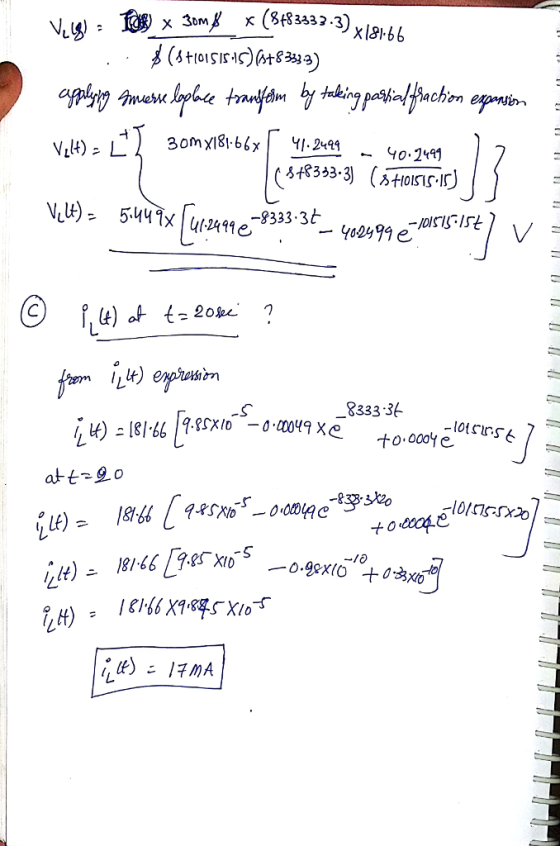 V_L(s) = 30m s × (s+83333.3) ×181.66
s (s+101515.15)(s+8333.3)
applying inverse laplace transform by taking partial fraction expansion
V_L(t) = L⁻¹ { 30m×181.66× [ 41.2499/(s+8333.3) − 40.2499/(s+101515.15) ] }
V_L(t) = 5.449× [ 41.2499 e^-8333.3t − 40.2499 e^-101515.15t ] V
(C) i_L(t) at t = 20sec ?
from i_L(t) expression
i_L(t) = 181.66 [ 9.85×10^-5 − 0.00049 × e^-8333.3t + 0.0004 e^-101515.5t ]
at t = 20
i_L(t) = 181.66 [ 9.85×10^-5 − 0.00049 e^-833.3×20 + 0.0004 e^-101515.5×20 ]
i_L(t) = 181.66 [ 9.85 ×10^-5 − 0.98×10^-10 + 0.33×10^-10 ]
i_L(t) = 181.66 × 9.845 ×10^-5
i_L(t) = 17mA